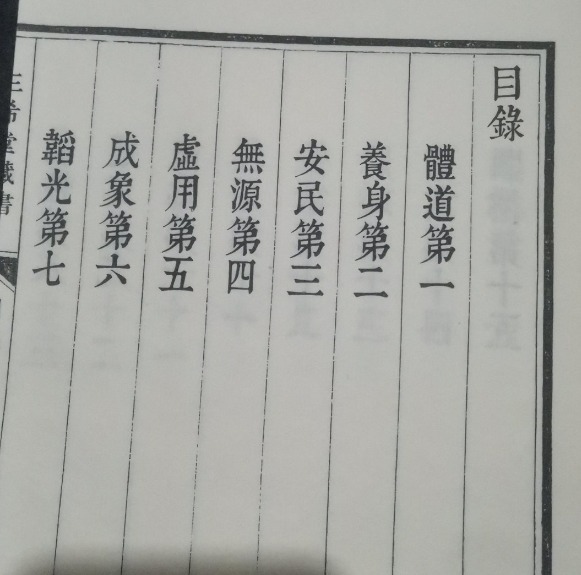 目錄
體道第一
養身第二
安民第三
無源第四
虛用第五
成象第六
韜光第七
三希堂藏書